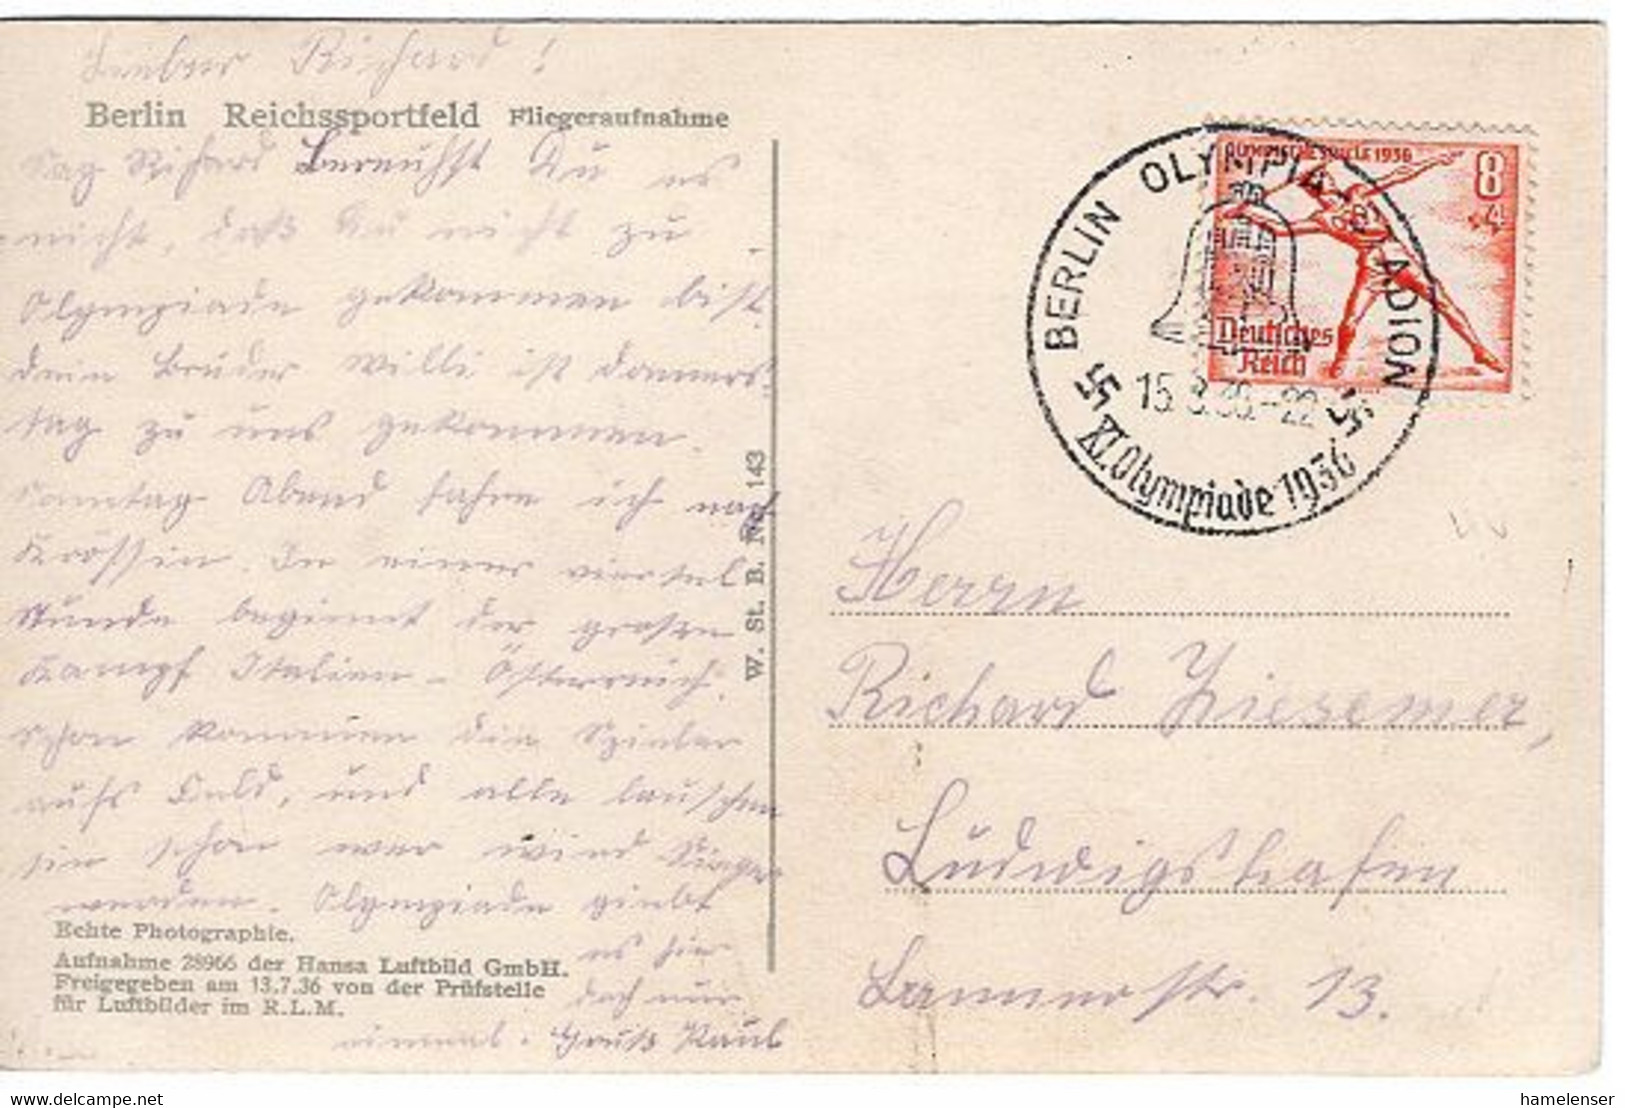 Lieber Richard!
Berlin Reichssportfeld Fliegeraufnahme
Sag Richard bereuhst Du es
nicht, daß Du nicht zu
Olympiade gekommen bist.
dein Bruder Willi ist Donners
tag zu uns gekommen.
Samstag Abend fahre ich nach
Krössin. In einer viertel
Stunde beginnt der große
Kampf Italien - Österreich.
schon kommen die Spieler
aufs Feld, und alle lauschen
sie schon wer wird Sieger
werden. Olympiade giebt
es hier
doch nur
einmal. Gruß Paul
Echte Photographie.
Aufnahme 28966 der Hansa Luftbild GmbH.
Freigegeben am 13.7.36 von der Prüfstelle
für Luftbilder im R.L.M.
W. St. B. Nr. 143
OLYMPISCHE SPIELE 1936
8
+4
Deutsches
Reich
BERLIN OLYMPIA-STADION
15.8.36.-22
XI. Olympiade 1936
Herrn
Richard Ziesemer,
Ludwigshafen
13.
hamelenser
https://www.delcampe.net